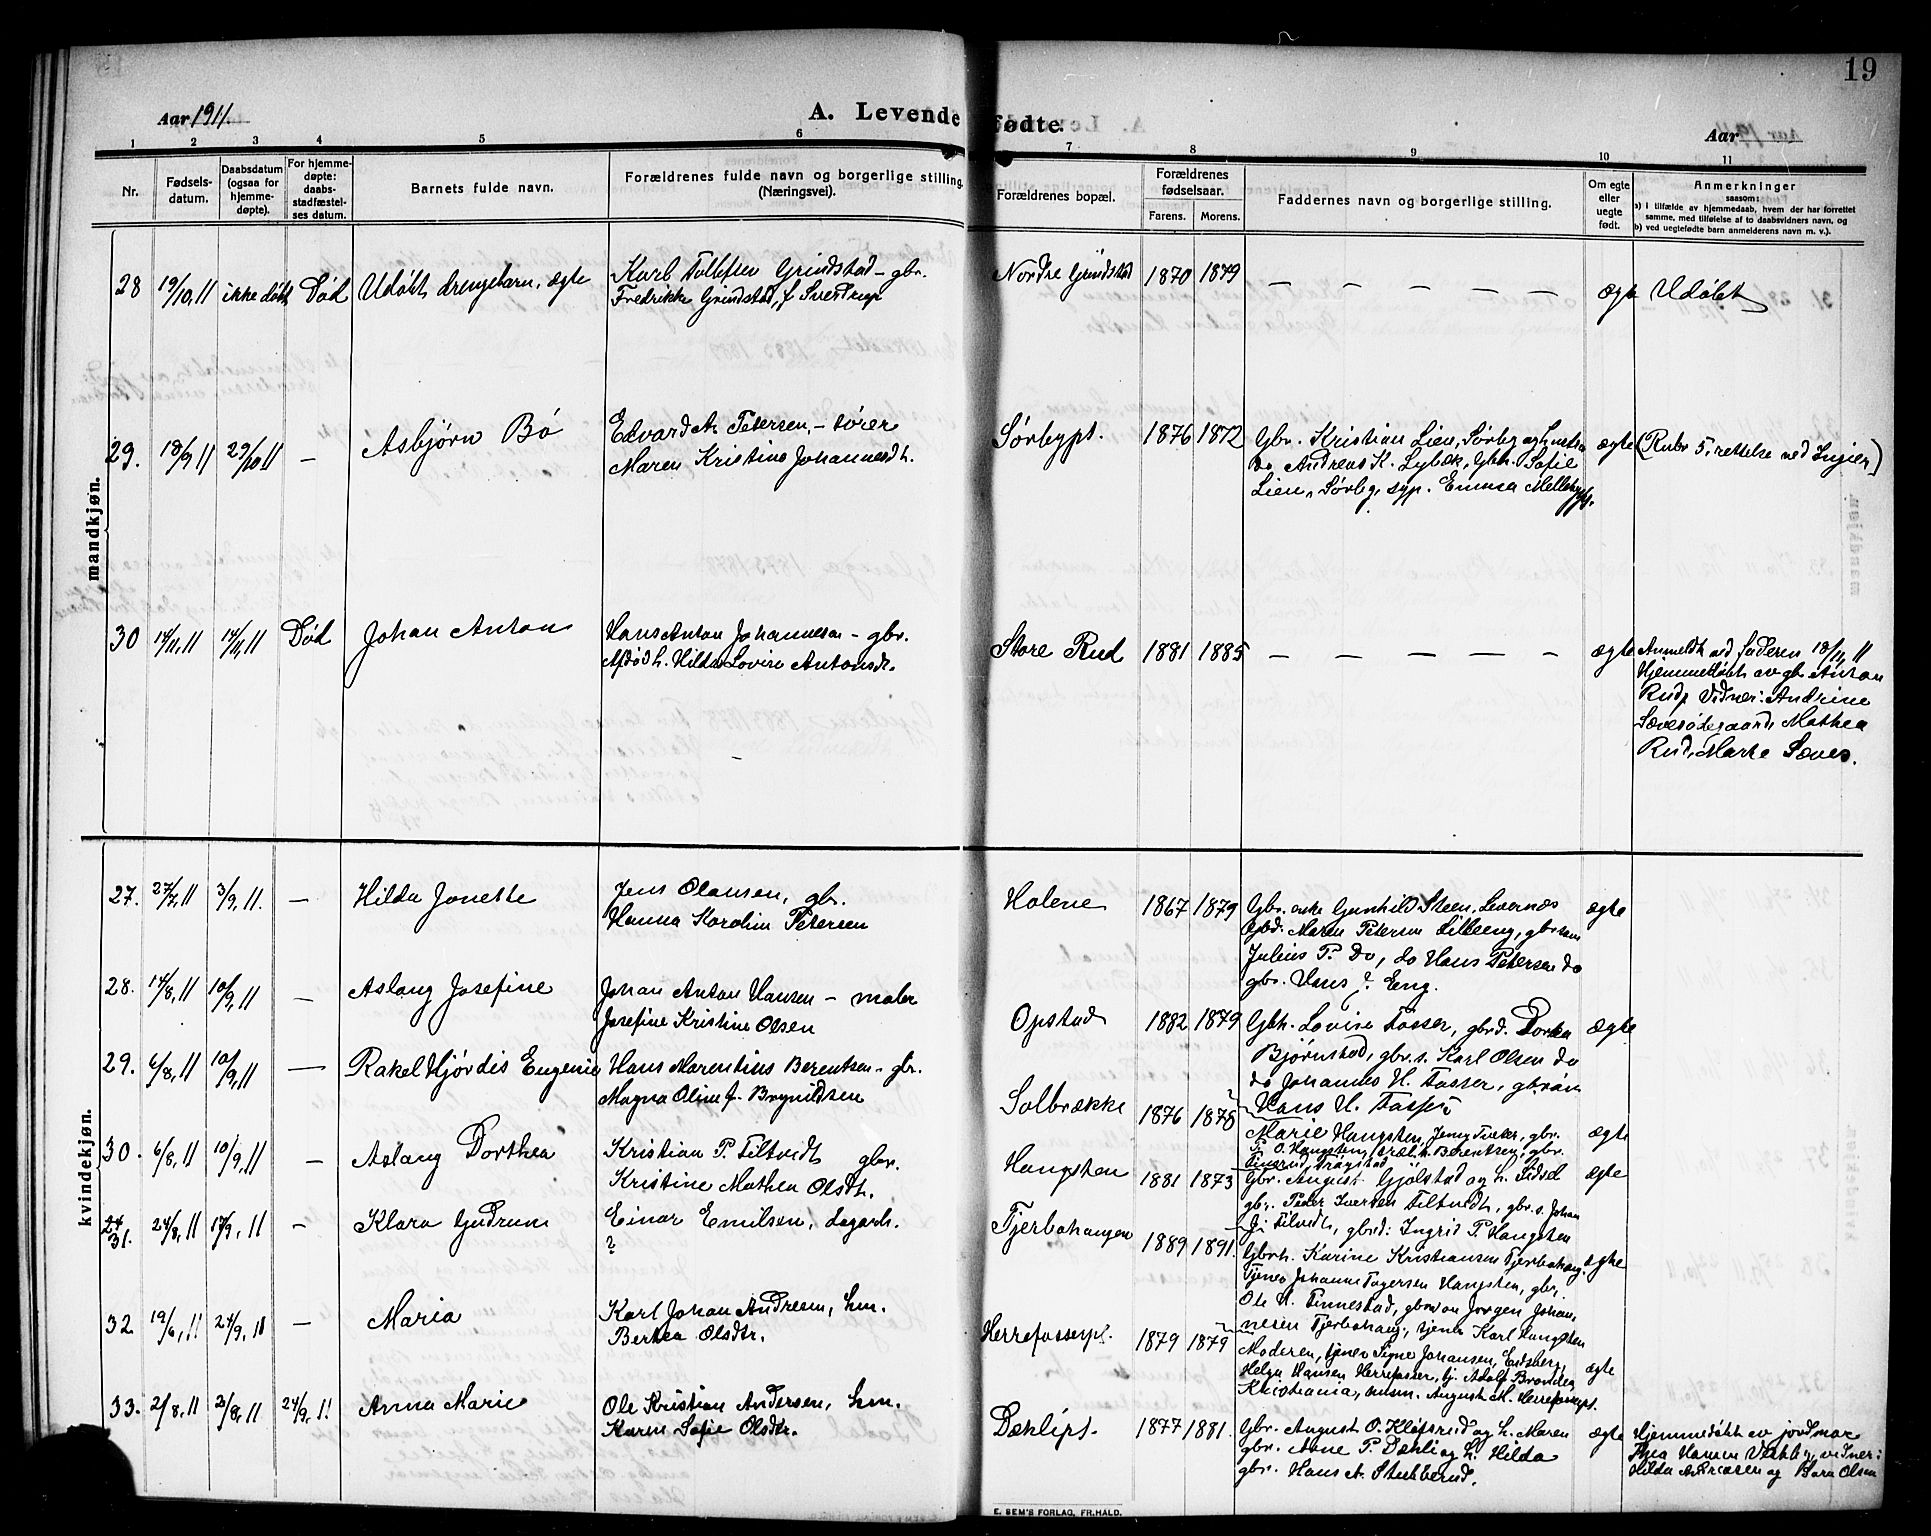 19
Aar 1911.
A. Levende fødte.
Aar
1 2 3 4 5 6 7 8 9 10 11
Nr.
Fødsels-
datum.
Daabsdatum
(ogsaa for
hjemme-
døpte).
For hjemme-
døpte:
daabs-
stadfæstel-
ses datum.
Barnets fulde navn.
Forældrenes fulde navn og borgerlige stilling.
(Næringsvei).
Forældrenes bopæl.
Forældrenes
fødselsaar.
Farens. Morens.
Faddernes navn og borgerlige stilling.
Om egte
eller
uegte
født.
Anmerkninger
saasom:
a) i tilfælde av hjemmedaab, hvem der har forrettet
samme, med tilføielse af to daabsvidners navn, og
b) ved uegtefødte barn anmelderens navn m. v.).
mandkjøn.
28 19/10, 11 ikke døbt Død Udøbt drengebarn, ægte
Karl Tollefsen Grindstad – gbr.
Fredrikke Grindstad, f. Sverdrup
Nordre Grindstad 1870 1879 – – – – – – ægte Udøbt
29. 18/9 11 29/10 11 – Asbjørn Bo
Edvard A. Petersen, – tører
Maren Kristine Johannesdt.
Sørbypl. 1876 1872
Gbr. Kristian Lien, Sørby og
do Andreas K. Lybæk, Gbh. Sofie
Lien, Sørby, syp. Emma Melleby
ægte (Rubr 5, rettelse ved Ingier)
30 14/11, 11 14/11, 11 Død Johan Anton
Hans Anton Johannesen – gbr.
Hilda Lovise Antonsdt.
Store Rud 1881 1885 – – – – – – ægte
Anmeldt ved faderen 18/11, 11
Hjemmedøbt av gbr Anton
Rud, Vidner: Andrine
Mathea
Rud, Marte
kvindekjøn.
27. 27/7, 11 3/9, 11. – Hilda Jonette
Jens Olausen, gbr.
Hanna Karolin Petersen
Holene 1867 1879
Gbr. enke Gunhild Steen, Levernæs
Gbd. Maren Petersen Lilleeng, gbrsøn
Julius P. do, do Hans Petersen do
gbr. Hans ? Eng.
ægte
28. 14/8, 11 10/9, 11 – Aslaug Josefine
Johan Anton Hansen – maler
Josefine Kristine Olsen
Opstad 1882 1879
Gbh. Lovise Fosser, gbrd. Dorthea
Bjørnstad, gbr.s. Karl Olsen do
do Johannes H. Fosser, gbrsøn
Hans H. Fosser
ægte
29. 6/8, 11 10/9, 11 – Rakel Hjørdis Eugenie
Hans Marentius Berentsen – gbr.
Magna Oline f. Brynildsen
Solbrække 1876 1878
Marie Hangsten, Jenny Tveter, gbr.
P. O. Hangsten, Berentsen, gbr.
Trøgstad
ægte
30. 6/8, 11 10/9, 11 – Aslaug Dorthea
Kristian P. Tiltvidt gbr.
Kristine Mathea Olsdt.
Hangsten 1881 1873
Gbr. August Gjølstad og h. Sidsel
gbr. Peder Iversen Tiltvidt, gbr.s. Johan
J. Tiltvidt, gbrd: Ingrid P. Hangsten
ægte
24
31. 24/8, 11 17/9, 11 – Klara Gudrun
Einar Emilsen, Lagarb.
?
Tjerbohaugen 1889 1891.
Gbrh. Karine Kristiansen Tjerbohaug,
Tjener Johanne Hangsten, gbr.
Ole H. Finnestad, gbrsøn Jørgen Johan-
nesen Tjerbohaug, tjener Karl Hangsten
ægte
32 19/6, 11 24/9, 11 – Maria
Karl Johan Andresen, hm.
Berthea Olsdtr.
Herrefosserpl. 1879 1879
Moderen, tjener Signe Johansen, Eidsberg,
Helga Hansen Herrefosser, tj. Adolf
Kristiania, August M. Herrefosserpl.
ægte
33. 2/8, 11 2/8, 11 24/9, 11 Anna Marie
Ole Kristian Andersen, hm.
Karen Sofie Olsdtr.
Dæhlipl. 1877 1881.
Gbr. August O. Kløfsrud og h. Maren
gbr. Arne P. Dæhli og h. Hilda
gbr. Hans A. Stubberud.
ægte
Hjemmedøbt av jordmor
Thea Hansen vidner:
Hilda Andreasen og Olsen
E. SEM'S FORLAG, FR.HALD.